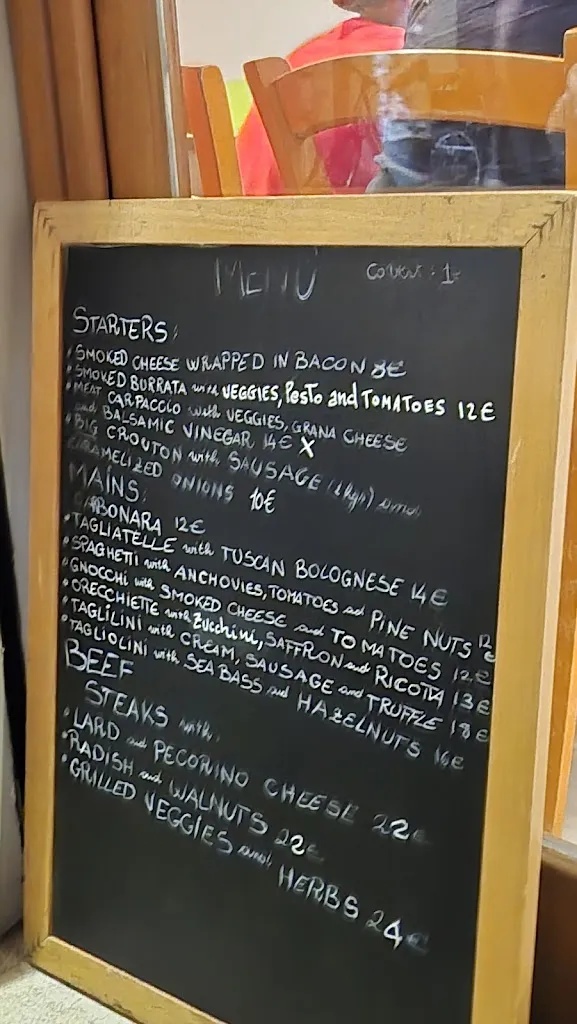 MENÙ
Covert: 1€
STARTERS:
• SMOKED CHEESE WRAPPED IN BACON 8€
• SMOKED BURRATA with VEGGIES, Pesto and TOMATOES 12€
• MEAT CARPACCIO with VEGGIES, GRANA CHEESE
and BALSAMIC VINEGAR 14€ X
• BIG CROUTON with SAUSAGE and
CARAMELIZED ONIONS 10€
MAINS:
CARBONARA 12€
• TAGLIATELLE with TUSCAN BOLOGNESE 14€
• SPAGHETTI with ANCHOVIES, TOMATOES and PINE NUTS 12€
• GNOCCHI with SMOKED CHEESE and TOMATOES 12€
• ORECCHIETTE with Zucchini, SAFFRON and RICOTTA 13€
• TAGLILINI with CREAM, SAUSAGE and TRUFFLE 18€
• TAGLIOLINI with SEA BASS and HAZELNUTS 16€
BEEF
STEAKS with:
• LARD and PECORINO CHEESE 22€
• RADISH and WALNUTS 22€
• GRILLED VEGGIES and HERBS 24€